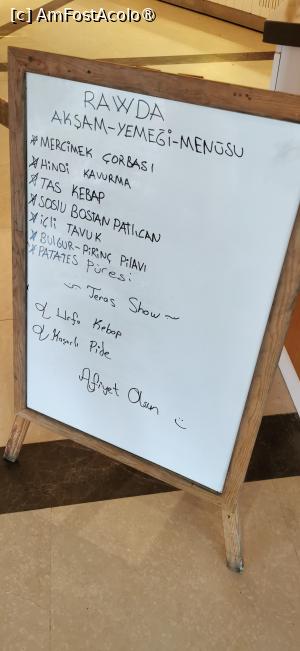 [c] AmFostAcolo®
RAWDA
AKŞAM-YEMEĞİ-MENÜSU
* MERCİMEK ÇORBASI
* HİNDİ KAVURMA
* TAS KEBAP
* SOSLU BOSTAN PATLICAN
* İÇLİ TAVUK
* BULGUR-PİRİNÇ PİLAVI
* PATATES Püresi
~ Teras Show ~
Urfa Kebap
Kaşarlı Pide
Afiyet Olsun